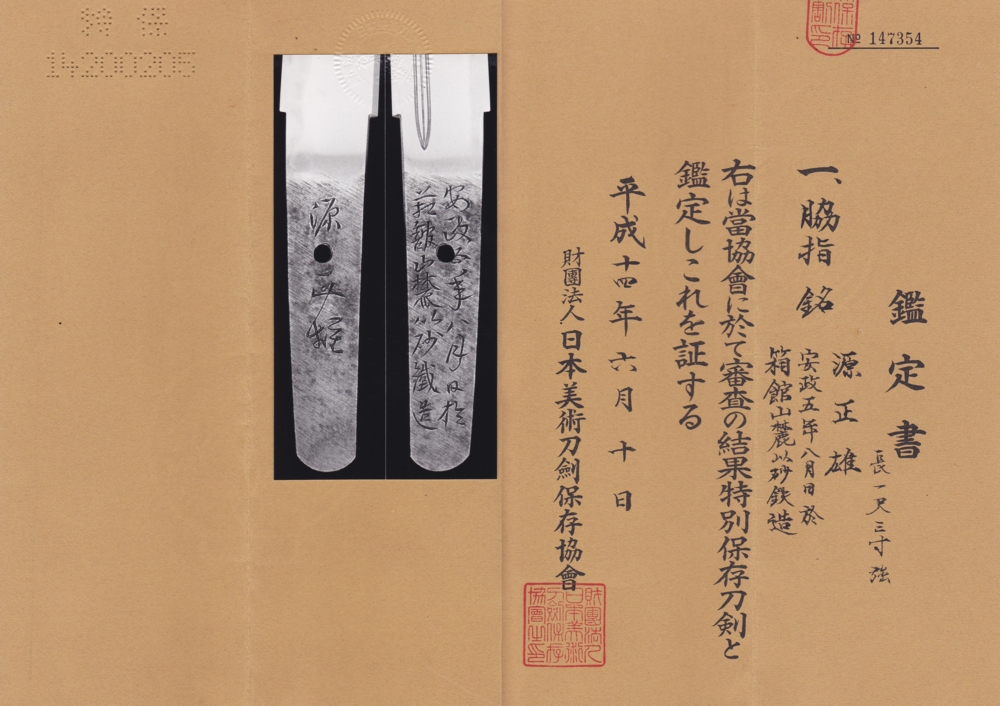 № 147354
鑑定書
長一尺三寸強
一、脇指 銘 源正雄
安政五年八月日於
箱館山麓以砂鉄造
右は當協會に於て審査の結果特別保存刀剣と
鑑定しこれを証する
平成十四年六月十日
財團法人日本美術刀劍保存協會
財團法人
日本美術
刀劍保存
協會之印
安政五年八月日於
箱舘山麓以砂鐵造
源正雄
特保
14200205